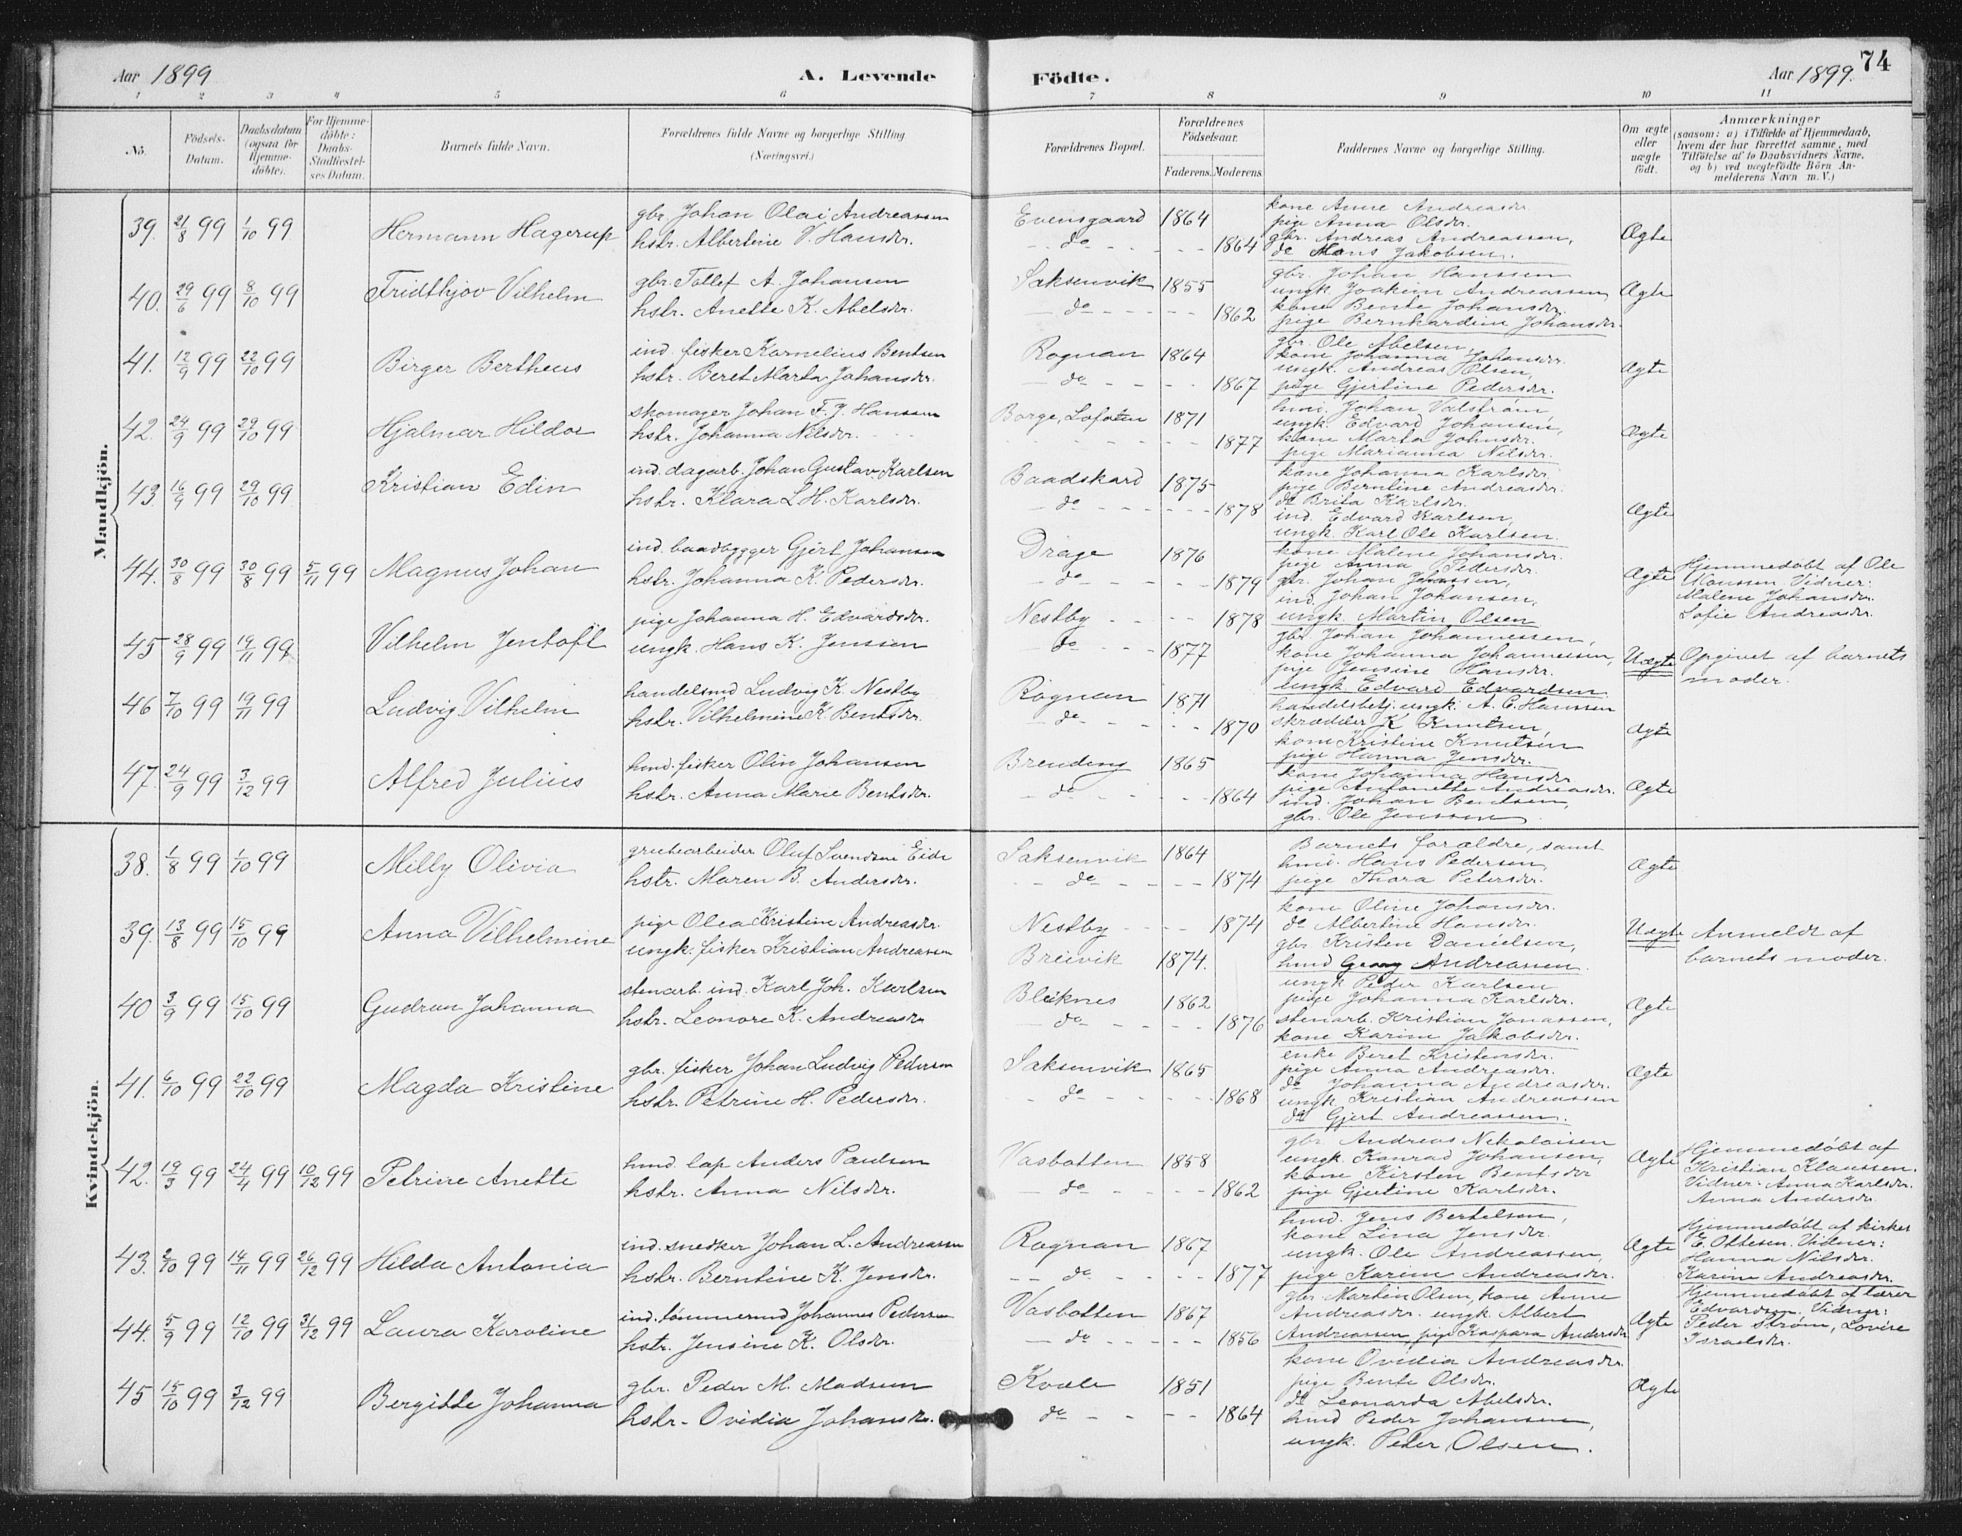 Aar 1899
A. Levende Födte.
Aar 1899.
74
1 2 3 4 5 6 7 8 9 10 11
No.
Födsels-Datum.
Daabsdatum (ogsaa for Hjemme-döbte).
For Hjemme-döbte: Daabs-Stadfæstel-ses Datum.
Barnets fulde Navn.
Forældrenes fulde Navne og borgerlige Stilling (Næringsvei.)
Forældrenes Bopæl.
Forældrenes Födselsaar.
Faderens. Moderens.
Faddernes Navne og borgerlige Stilling.
Om ægte eller uægte födt.
Anmærkninger
(saasom: a) i Tilfælde af Hjemmedaab, hvem der har forrettet samme, med Tilföielse af to Daabsvidners Navne, og b) ved uægtefödte Börn Anmelderens Navn m. V.)
Mandkjön.
39. 21/8 99 1/10 99 Hermann Hagerup
gbr. Johan Olai Andreassen Evensgaard 1864
hstr. Albertine V. Hansdr. do 1864
kone Anne Andreasdr.
pige Anna Olsdr.
gbr. Andreas Andreassen,
do Hans Jakobsen.
Ægte
40. 29/6 99 8/10 99 Fridthjov Vilhelm
gbr. Tollef A. Johansen Saksenvik 1855
hstr. Anette K. Abelsdr. do 1862
gbr. Johan Hanssen
ungk. Joakim Andreassen
kone Bente Johansdr.
pige Bernhardine Johansdr.
Ægte
41. 12/9 99 22/10 99 Birger Bertheus
ind. fisker Kornelius Bentsen Rognan 1864
hstr. Beret Marta Johansdr. do 1867
gbr. Ole Abelsen,
kone Johanna Johansdr.
ungk. Andreas Olsen,
pige Gjertine Pedersdr.
Ægte
42. 24/9 99 29/10 99 Hjalmar Hildor
skomager Johan F. J. Hanssen Borge, Lofoten 1871
hstr. Johanna Nilsdr. 1877
hmd. Johan Valstrøm,
ungk. Edvard Johansen,
kone Marta Johnsdr.
pige Marianna Nilsdr.
Ægte
43. 16/9 99 29/10 99 Kristian Edin
ind. dagarb. Johan Gustav Karlsen Baadskard 1875
hstr. Klara L. H. Karlsdr. do 1878
kone Johanna Karlsdr.
pige Berntine Andreasdr.
do Brita Karlsdr.
ind. Edvard Karlsen,
ungk. Karl Ole Karlsen.
Ægte
44. 30/8 99 30/8 99 5/11 99 Magnus Johan
ind. baadbygger Gjert Johansen Drage 1876
hstr. Johanna K. Pedersdr. do 1879
kone Malene Johansdr.
pige Anna Pedersdr.
gbr. Johan Jonassen,
ind. Johan Johansen,
ungk. Martin Olsen
Ægte
Hjemmedøbt af Ole
Monssen. Vidner:
Malene Johansdr.
Sofie Andreasdr.
45 28/9 99 19/11 99 Vilhelm Jentoft
pige Johanna H. Edvardsdr. Nestby 1878
ungk. Hans K. Jenssen do 1877
gbr. Johan Johannessen,
kone Johanna Johannessen,
pige Jensine Hansdr.
ungk. Edvard Edvardsen
Uægte
Opgivet af barnets
moder.
46 7/10 99 19/11 99 Ludvig Vilhelm
handelsmd Ludvig K. Nestby Rognan 1871
hstr. Vilhelmine K. Bentsdr. do 1870
handelsbetj. ungk. A. C. Hanssen
skrædder K. Knutsen,
kone Kristine Knutsen
pige Hanna Jensdr.
Ægte
47. 24/9 99 3/12 99 Alfred Julius
hmd. fisker Olin Johansen Breuding 1865
hstr. Anna Marie Bentsdr. do 1864
kone Johanna Hansdr.
pige Antonette Andreasdr.
ind. Johan Bentsen,
gbr. Ole Jenssen
Ægte
Kvindekjön.
38. 1/8 99 1/10 99 Milly Olivia
grubearbeider Oluf Svendsen Eide Saksenvik 1864
hstr. Maren B. Andersdr. do 1874
Barnets forældre, samt
hmd. Hans Pedersen
pige Thora Petersdr.
Ægte
39. 13/8 99 15/10 99 Anna Vilhelmine
pige Olea Kristine Andreasdr. Nestby 1874
ungk. fisker Kristian Andreassen Breivik 1874.
kone Oline Johansdr.
do Albertine Hansdr.
gbr Kristen Danielsen,
hmd Georg Andreassen.
Uægte
Anmeldt af
barnets moder.
40 3/9 99 15/10 99 Gudrun Johanna
stenarb. ind. Karl Joh. Karlsen Bleiknes 1862
hstr. Leonore K. Andreasdr do 1876
ungk Peder Karlsen
pige Johanna Karlsdr.
stenarb. Kristian Jonassen,
kone Karine Jakobsdr.
Ægte
41. 6/10 99 22/10 99 Magda Kristine
gbr. fisker Johan Ludvig Pedersen Saksenvik 1865
hstr. Petrine H. Pedersdr. do 1868
enke Beret Kristensdr.
pige Anna Andreasdr.
do Johanna Andreasdr.
ungk. Kristian Andreassen
do Gjert Andreassen.
Ægte
42. 19/3 99 24/4 99 10/12 99 Petrine Anette
hmd. lap Anders Paulsen Vasbotten 1858
hstr. Anna Nilsdr. do 1862
gbr. Andreas Nikolaisen
ungk. Konrad Johansen,
kone Kirsten Bentsdr
pige Gjertine Karlsdr.
Ægte
Hjemmedøbt af
Kristian Klaussen.
Vidner: Anna Karlsdr.
Anna Andersdr
43. 2/10 99 14/11 99 26/12 99 Hilda Antonia
ind. snedker Johan L. Andreassen Rognan 1867
hstr. Berntine K. Jensdr. do 1877
hmd. Jens Bertelsen,
kone Lina Jensdr.
ungk. Ole Andreassen,
pige Karine Andreasdr.
Ægte
Hjemmedøbt af kirkes
E. Ottesen. Vidner:
Hanna Nilsdr.
Karine Andreasdr.
44. 5/9 99 12/10 99 31/12 99 Laura Karoline
ind. tømmermd Johannes Pedersen Vasbotten 1867
hstr. Jensine K. Olsdr. do 1856
gbr. Martin Olsen, kone Anne
Andreasdr. ungk Albert
Andreassen pige Kaspara Andersdr
Ægte
Hjemmedøbt af lærer
Edvardsen. Vidner:
Peder Strøm, Lovise
Israelsdr.
45 15/10 99 3/12 99 Bergitte Johanna
gbr. Peder M. Madsen Kvæle 1851
hstr. Ovidia Johansdr. do 1864
kone Ovidia Andreasdr.
pige Bente Olsdr.
do Leonarda Abelsdr.
hmd Peder Johansen,
ungk. Peter Olsen.
Ægte